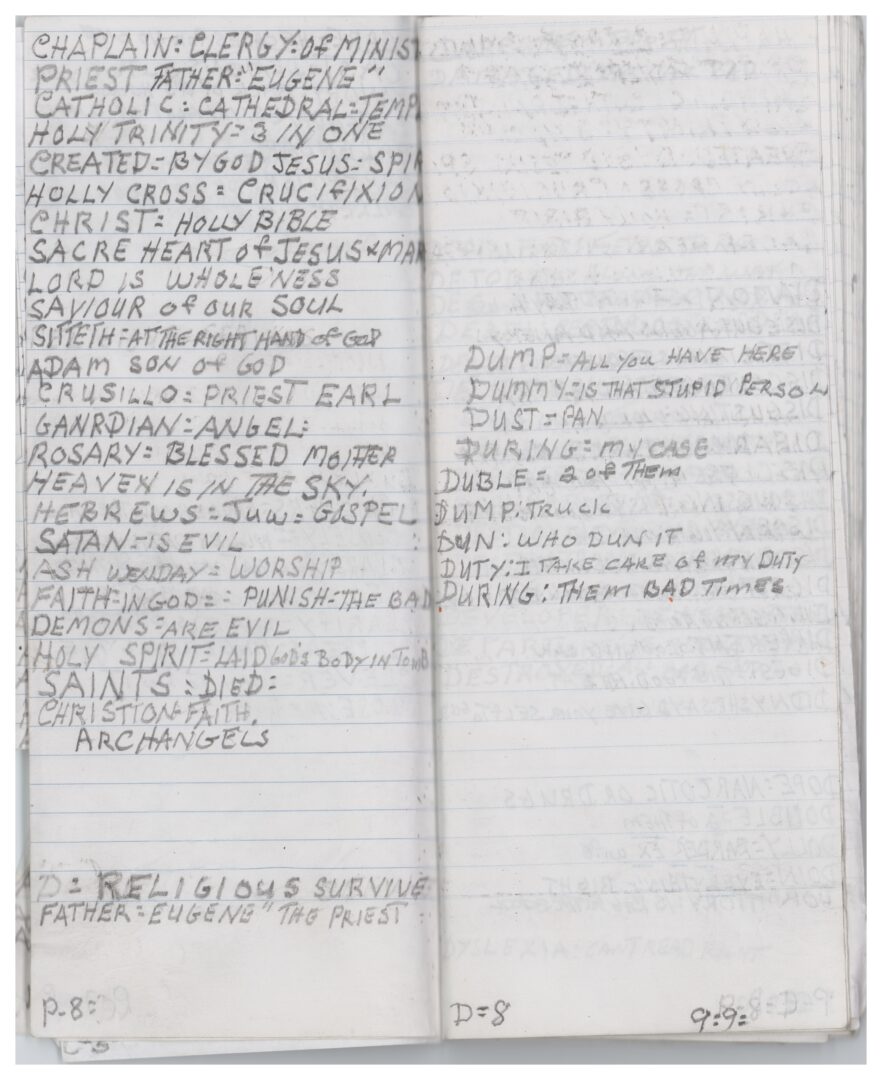 CHAPLAIN: CLERGY: Of MINIST
PRIEST FATHER="EUGENE"
CATHOLIC: CATHEDRAL=TEMP
HOLY TRINITY= 3 IN ONE
CREATED=BY GOD JESUS= SPIR
HOLLY CROSS = CRUCIFIXION
CHRIST= HOLLY BIBLE
SACRE HEART of JESUS & MAR
LORD IS WHOLE'NESS
SAVIOUR of OUR SOUL
SITTETH=AT THE RIGHT HAND of GOD
ADAM SON of GOD
CRUSILLO: PRIEST EARL
GANRDIAN=ANGEL:
ROSARY= BLESSED MOTHER
HEAVEN IS IN THE SKY.
HEBREWS=JUW= GOSPEL
SATAN=IS EVIL
ASH WENDAY= WORSHIP
FAITH=IN GOD== PUNISH-THE BAD
DEMONS=ARE EVIL
HOLY SPIRIT=LAID GOD'S BODY IN TOMB
SAINTS : DIED=
CHRISTION=FAITH.
ARCHANGELS
"D= RELIGIOUS SURVIVE
FATHER=EUGENE" THE PRIEST
P-8=
DUMP=ALL YOU HAVE HERE
DUMMY=IS THAT STUPID PERSON
DUST=PAN
DURING=MY CASE
DUBLE = 2 of THEM
DUMP:TRUCK
DUN: WHO DUN IT
DUTY:I TAKE CARE of MY DUTY
DURING: THEM BAD TIMES
DYSLEXIA=CANT READ RIGHT
D=8
9=9=